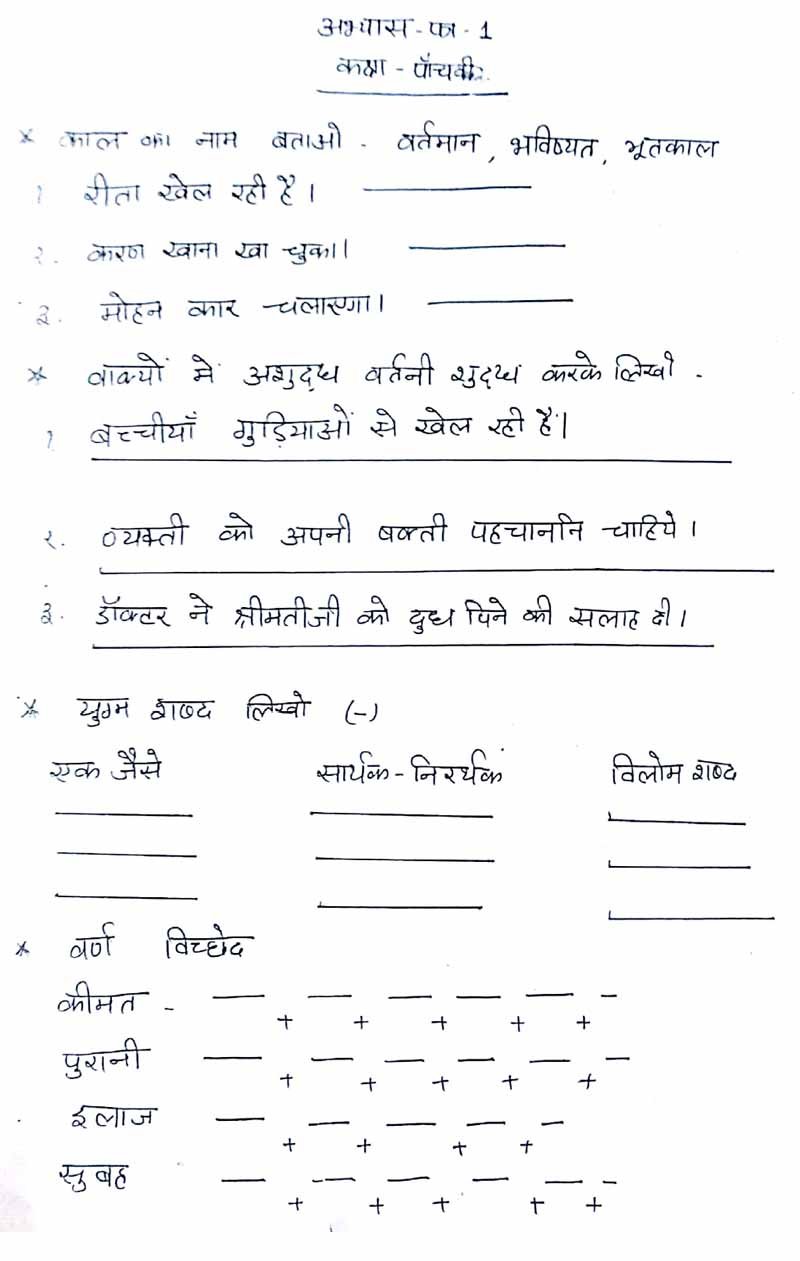 अभ्यास - पत्र - 1
कक्षा - पाँचवी:
* काल का नाम बताओ - वर्तमान, भविष्यत, भूतकाल
१ रीता खेल रही है। ______
२. करण खाना खा चुका। ______
३. मोहन कार चलाएगा। ______
* वाक्यों में अशुद्ध वर्तनी शुद्ध करके लिखो -
१ बच्चीयाँ गुड़ियाओं से खेल रही हैं।
२. व्यक्ती को अपनी षक्ती पहचाननि चाहिये।
३. डॉक्टर ने श्रीमतीजी को दुध पिने की सलाह दी।
* युग्म शब्द लिखो (-)
एक जैसे सार्थक - निरर्थक विलोम शब्द
* वर्ण विच्छेद
कीमत - __ + __ + __ + __ + __ + __
पुरानी __ + __ + __ + __ + __ + __
इलाज __ + __ + __ + __ + __
सुबह __ + __ + __ + __ + __ + __